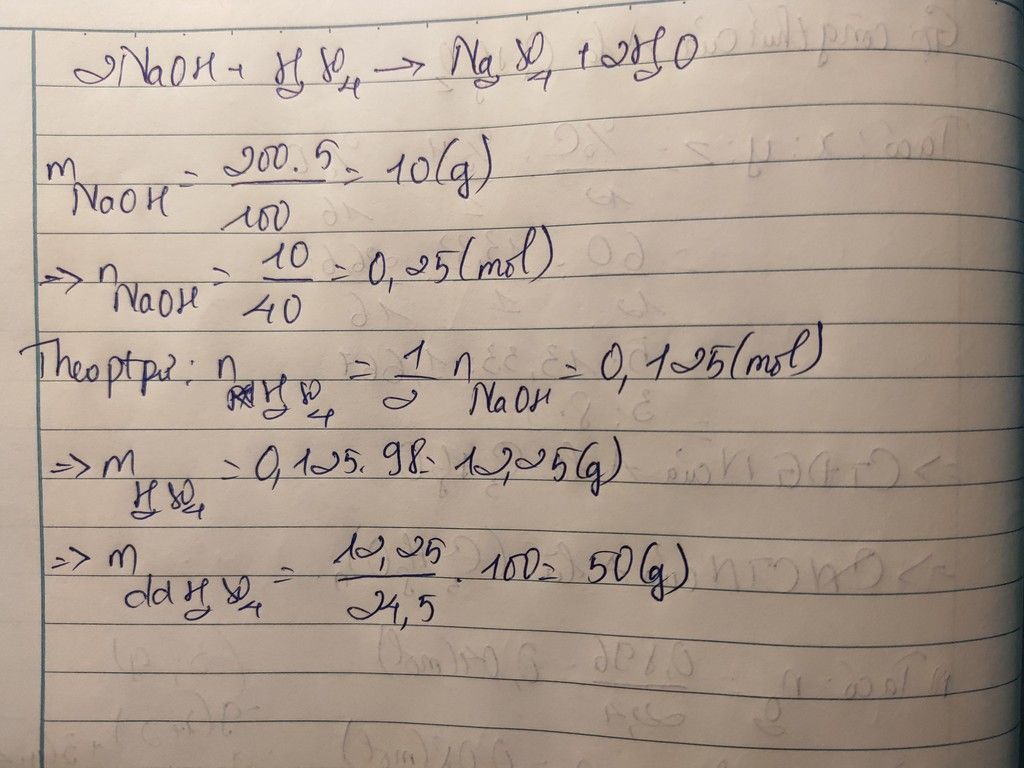 2NaOH + H₂SO₄ → Na₂SO₄ + 2H₂O
m NaOH = 200.5/100 = 10(g)
=> n NaOH = 10/40 = 0,25(mol)
Theo ptpứ: n H₂SO₄ = 1/2 n NaOH = 0,125(mol)
=> m H₂SO₄ = 0,125.98 = 12,25(g)
=> m dd H₂SO₄ = 12,25/24,5 . 100 = 50(g)